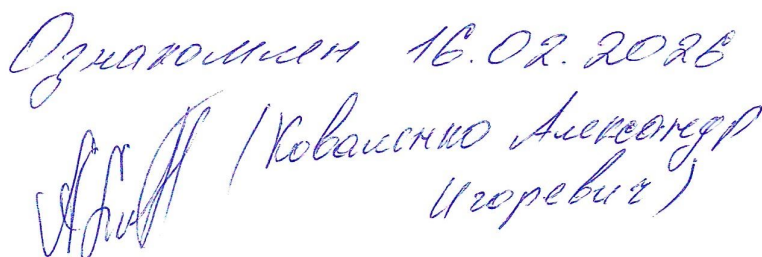 Ознакомлен 16.02.2026
(Коваленко Александр
Игоревич)